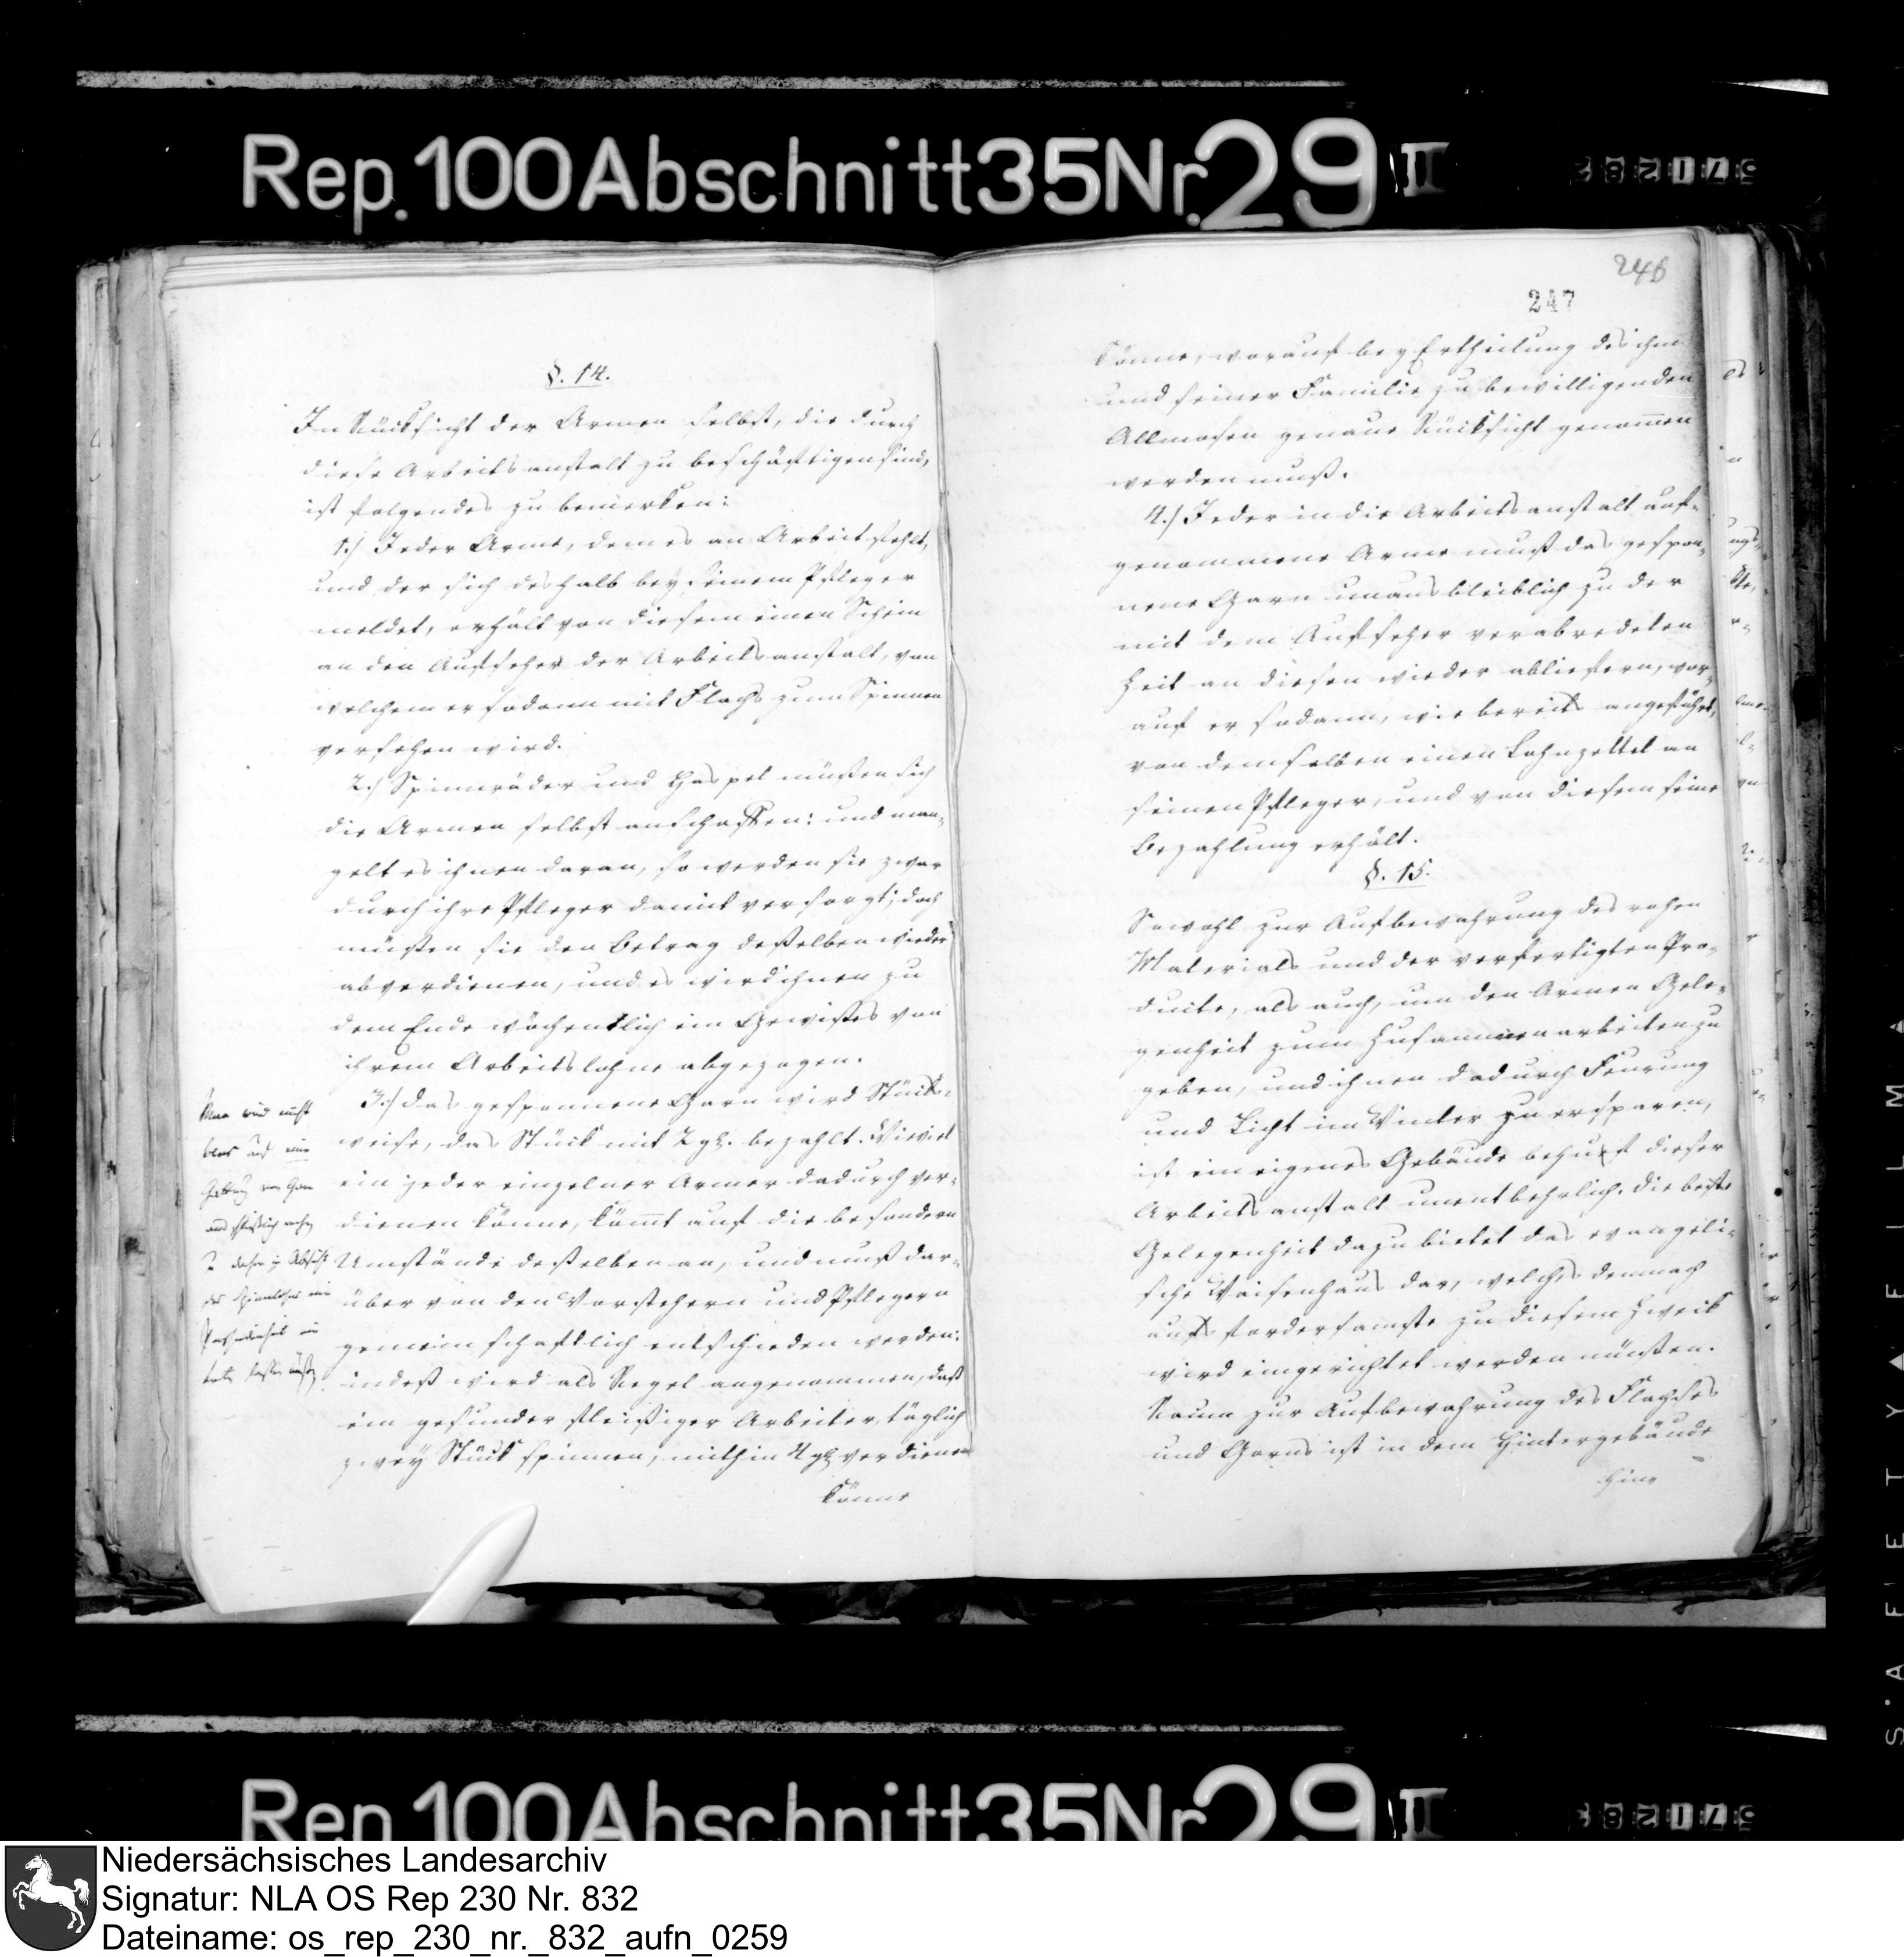 Rep. 100 Abschnitt 35 Nr. 29 II
§. 14.
In Rücksicht der Armen selbst, die durch
diese Arbeitsanstalt zu beschäftigen sind,
ist folgendes zu bemerken:
1.) Jeder Arme, dem es an Arbeit fehlt,
und der sich deshalb bey seinem Pfleger
meldet, erhält von diesem einen Schein
an den Aufseher der Arbeitsanstalt, von
welchem er sodann mit Flachs zum Spinnen
versehen wird.
2.) Spinnräder und Haspel müßen sich
die Armen selbst anschaffen: und man-
gelt es ihnen daran, so werden sie zwar
durch ihre Pfleger damit versorgt; doch
müßen sie den Betrag deßelben wieder
abverdienen, und es wird ihnen zu
dem Ende wöchentlich ein Gewißes von
ihrem Arbeitslohne abgezogen.
3.) das gesponnene Garn wird Stück-
weise, das Stück mit 2 ggr. bezahlt. Wieviel
ein jeder einzelner Armer dadurch ver-
dienen könne, kömt auf die besondern
Umstände deßelben an, und muß dar-
über von den Vorstehern und Pflegern
gemeinschaftlich entschieden werden:
indeß wird als Regel angenommen, daß
ein gesunder fleißiger Arbeiter, täglich
zwey Stück spinnen, mithin 4 ggr verdienen
könne
Man wird nicht
blos auf eine
Gattung von Garn
246
247
könne, worauf bey Ertheilung des ihm
und seiner Familie zu bewilligenden
Allmosen genaue Rücksicht genomen
werden muß.
4.) Jeder in die Arbeitsanstalt auf-
genommene Arme muß das gespon-
nene Garn unausbleiblich zu der
mit dem Aufseher verabredeten
Zeit an diesen wieder abliefern, wor-
auf er sodann, wie bereits angeführt,
von demselben einen Lohnzettel an
seinen Pfleger, und von diesem seine
Bezahlung erhält.
§. 15.
Sowohl zur Aufbewahrung des rohen
Materials und der verfertigten Pro-
ducte, als auch, um den Armen Gele-
genheit zum Zusammenarbeiten zu
geben, und ihnen dadurch Feurung
und Licht im Winter zu ersparen,
ist ein eigenes Gebäude behuf dieser
Arbeitsanstalt unentbehrlich. Die beste
Gelegenheit dazu bietet das evangeli-
sche Waisenhaus dar, welches demnach
aufs fordersamste zu diesem Zweck
wird eingerichtet werden müßen.
Raum zur Aufbewahrung des Flachses
und Garns ist in dem Hintergebäude
SAFETY FILM
Rep. 100 Abschnitt 35 Nr. 29 II
Niedersächsisches Landesarchiv
Signatur: NLA OS Rep 230 Nr. 832
Dateiname: os_rep_230_nr._832_aufn_0259